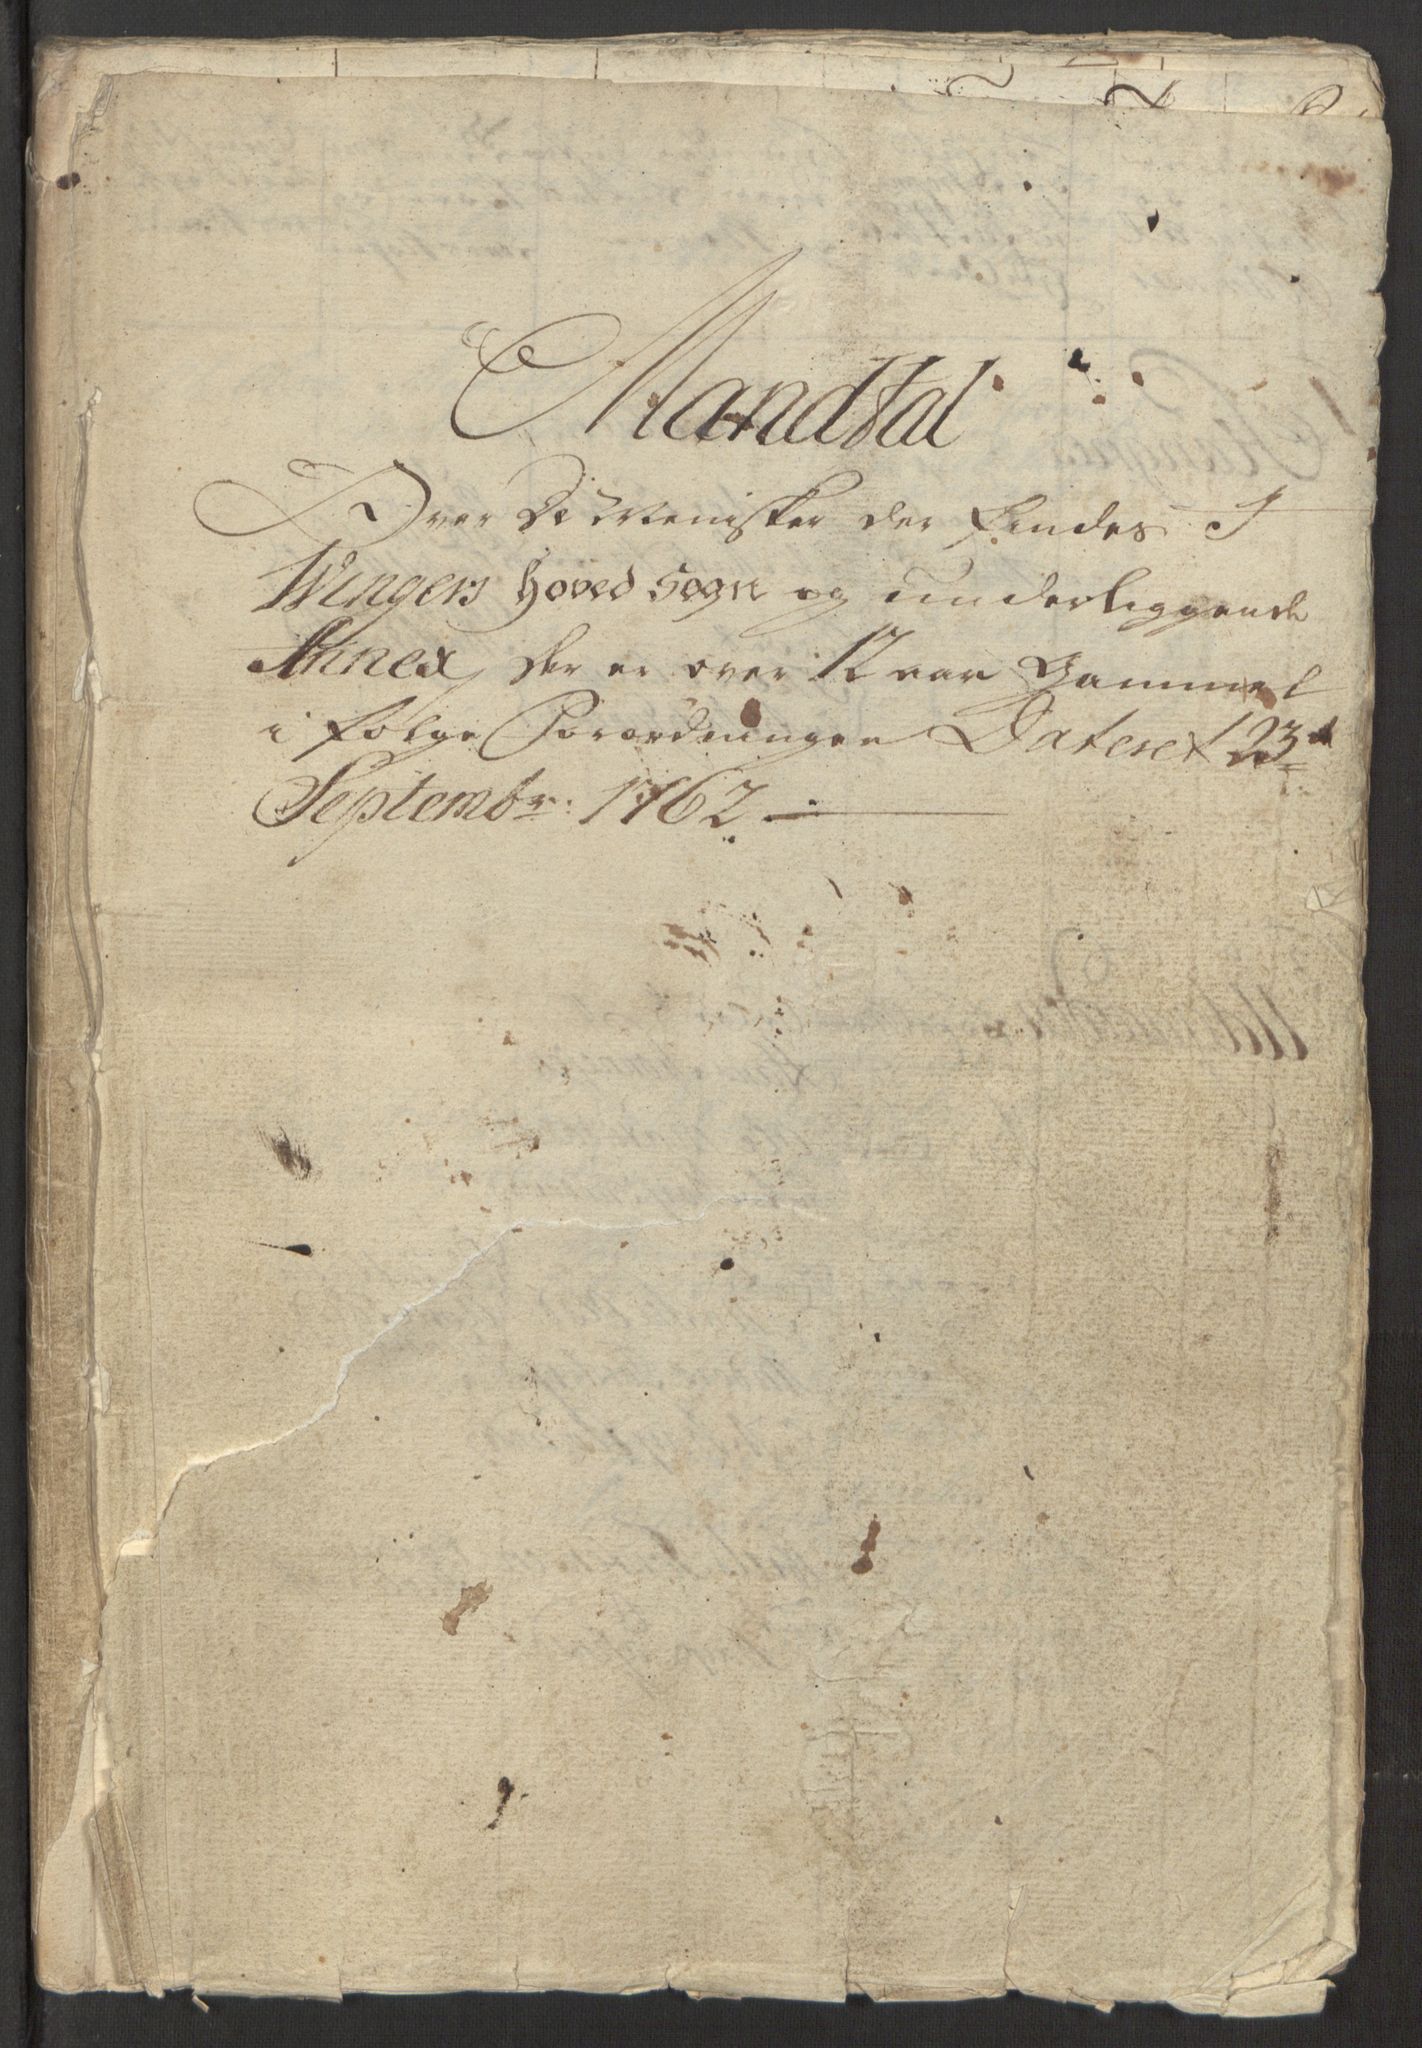 Mandtal
Over De Menisker der findes I
Wingers Hoved Sogn og underliggende
Annex, der er over 12 aar Gammel
i følge Forordningen Dateret 23de
Septembr: 1762.